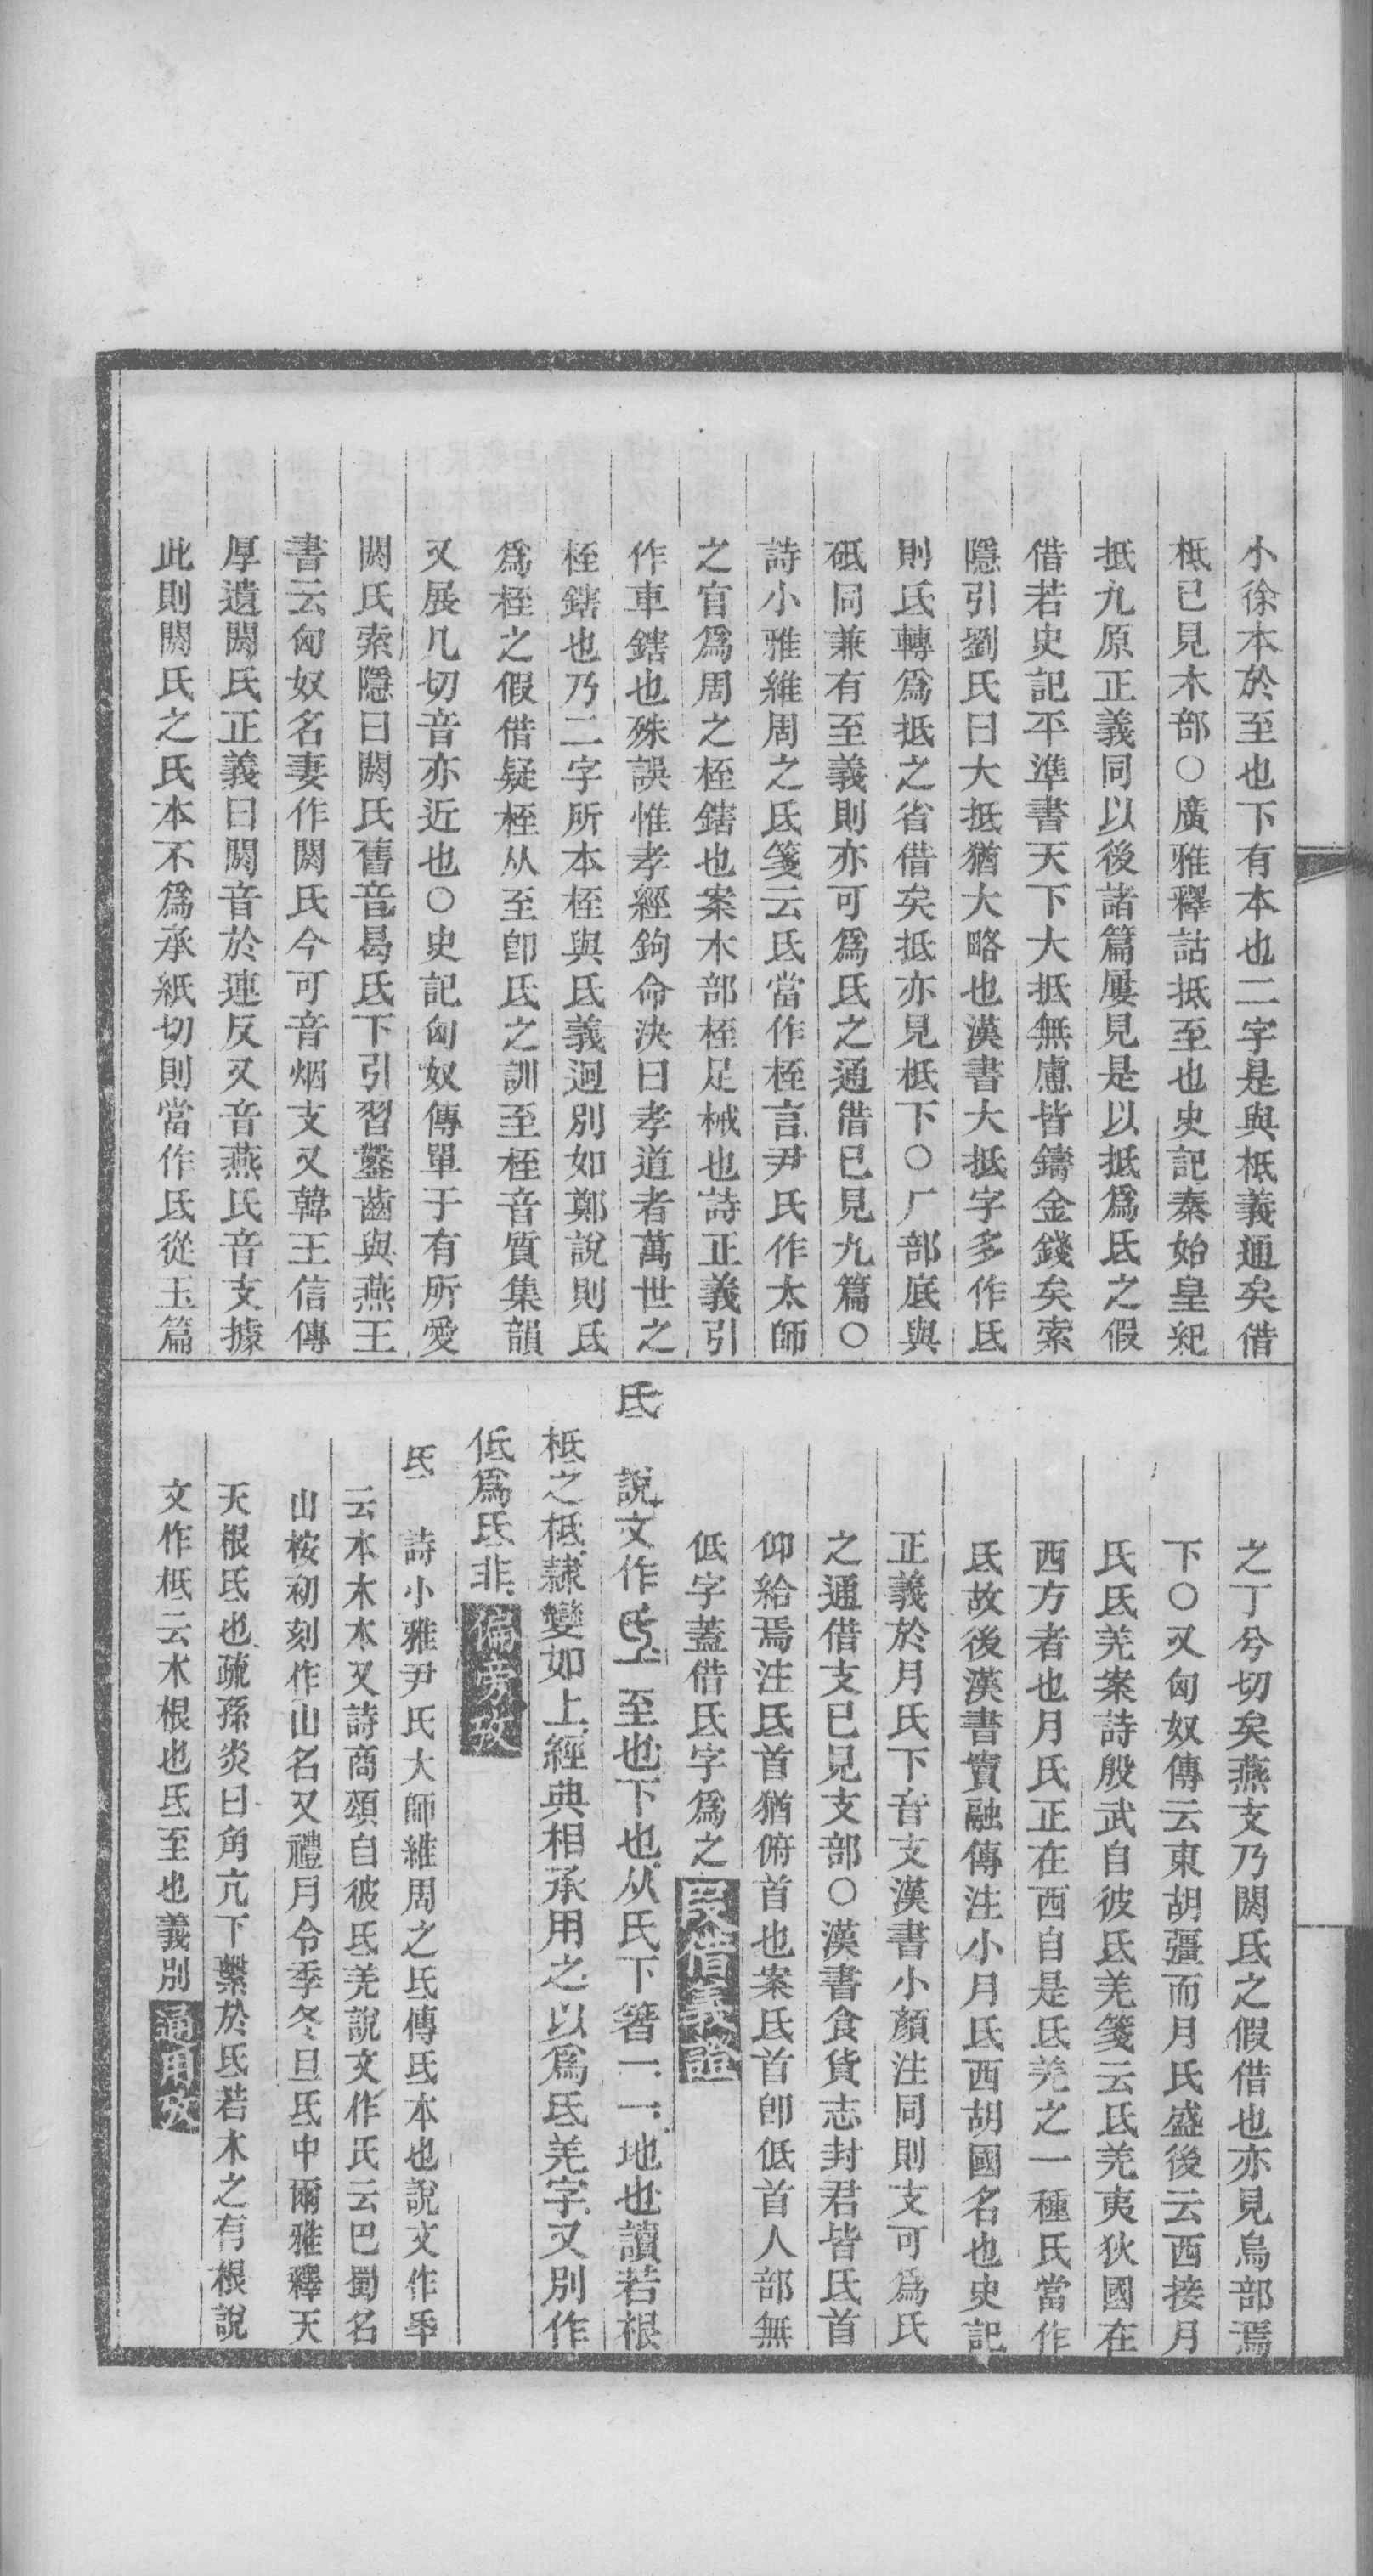 小徐本於至也下有本也二字是與柢義通矣借
柢已見木部○廣雅釋詁抵至也史記秦始皇紀
抵九原正義同以後諸篇屢見是以抵爲氐之假
借若史記平準書天下大抵無慮皆鑄金錢矣索
隱引劉氏曰大抵猶大略也漢書大抵字多作氐
則氐轉爲抵之省借矣抵亦見柢下○厂部底與
砥同兼有至義則亦可爲氐之通借已見九篇○
詩小雅維周之氐箋云氐當作桎言尹氏作太師
之官爲周之桎鎋也案木部桎足械也詩正義引
作車鎋也殊誤惟孝經鉤命決曰孝道者萬世之
桎鎋也乃二字所本桎與氐義迥別如鄭說則氐
爲桎之假借疑桎从至卽氐之訓至桎音質集韻
又展几切音亦近也○史記匈奴傳單于有所愛
閼氏索隱曰閼氏舊音曷氏下引習鑿齒與燕王
書云匈奴名妻作閼氏今可音烟支又韓王信傳
厚遺閼氏正義曰閼音於連反又音燕氏音支據
此則閼氏之氏本不爲承紙切則當作氐從玉篇
之丁兮切矣燕支乃閼氐之假借也亦見烏部焉
下○又匈奴傳云東胡彊而月氏盛後云西接月
氏氐羌案詩殷武自彼氐羌箋云氐羌夷狄國在
西方者也月氏正在西自是氐羌之一種氏當作
氐故後漢書竇融傳注小月氏西胡國名也史記
正義於月氏下音支漢書小顏注同則支可爲氏
之通借支已見支部○漢書食貨志封君皆氐首
仰給焉注氐首猶俯首也案氐首卽低首人部無
低字蓋借氐字爲之 叚借義證
氐 說文作氐至也下也从氏下箸一一地也讀若根
柢之柢隸變如上經典相承用之以爲氐羌字又別作
低爲氐非 偏旁攷
氐 詩小雅尹氏大師維周之氐傳氐本也說文作氒
云本木木又詩商頌自彼氐羌說文作氏云巴蜀名
山桉初刻作山名又禮月令季冬旦氐中爾雅釋天
天根氐也疏孫炎曰角亢下繫於氐若木之有根說
文作柢云木根也氐至也義別 通用攷